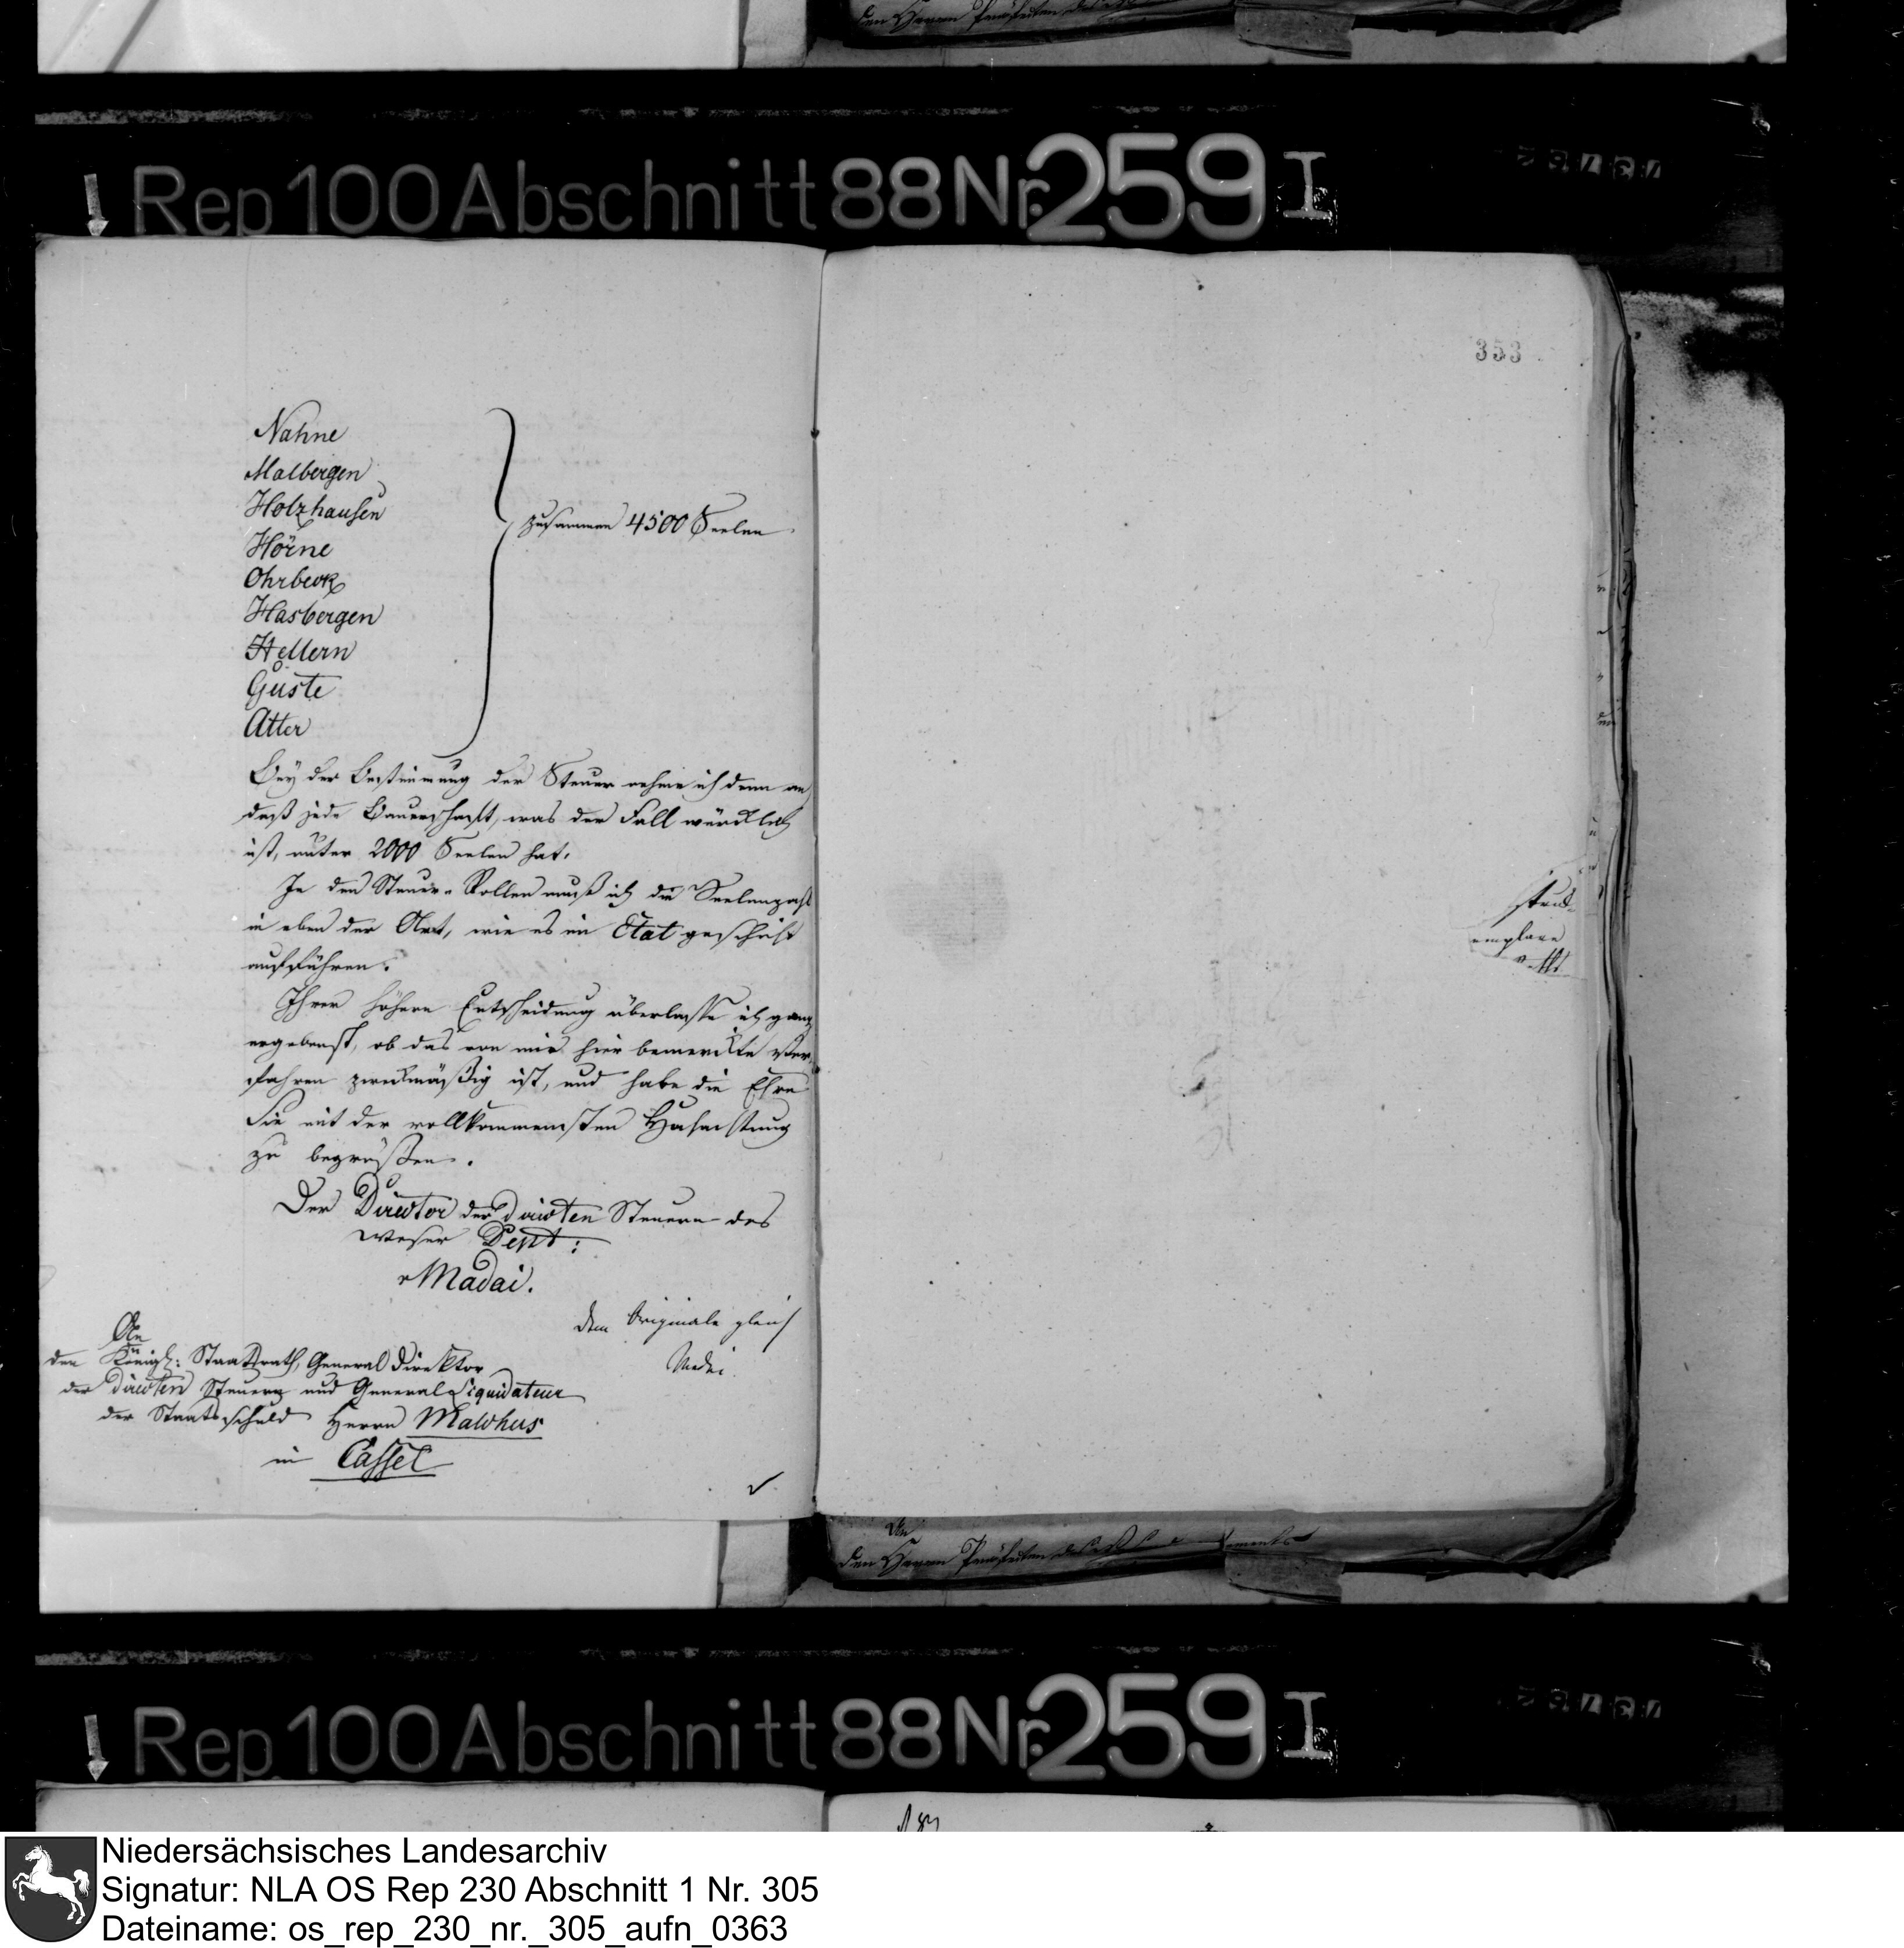 den Herrn Präfecten des
Rep 100 Abschnitt 88 Nr. 259 I
353
Nahne
Malbergen
Holzhausen
Hörne
Ohrbeck
Hasbergen
Hellern
Güste
Atter
zusammen 4500 Seelen
Bey der Bestimmung der Steuer nehme ich denn an
daß jede Bauerschaft, was der Fall würcklich
ist, unter 2000 Seelen hat.
In den Steuer-Rollen muß ich die Seelenzahl
in eben der Art, wie es im Etat geschieht
aufführen.
Ihrer höhern Entscheidung überlasse ich ganz
ergebenst, ob das von mir hier bemerckte Ver-
fahren zweckmäßig ist, und habe die Ehre
Sie mit der vollkommensten Hochachtung
zu begrüßen.
Der Director der directen Steuern des
Weser Dept:
v Madai.
dem Originale gleich
Madai.
An
den Königl: Staatsrath, General Direktor
der directen Steuern und General Liquidateur
der Staatsschuld Herrn Malchus
in Cassel
emplare
An
den Herrn Präfecten des
Rep 100 Abschnitt 88 Nr. 259 I
Niedersächsisches Landesarchiv
Signatur: NLA OS Rep 230 Abschnitt 1 Nr. 305
Dateiname: os_rep_230_nr._305_aufn_0363